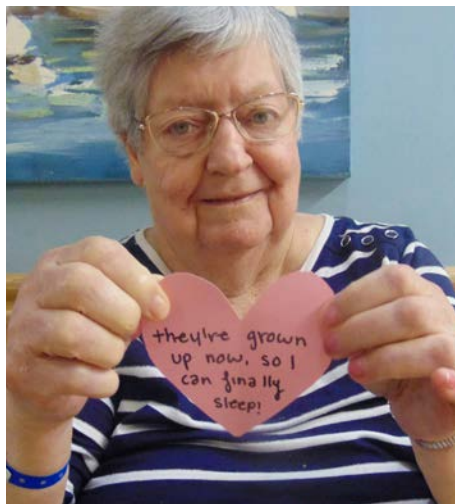 they're grown
up now, so I
can finally
sleep!